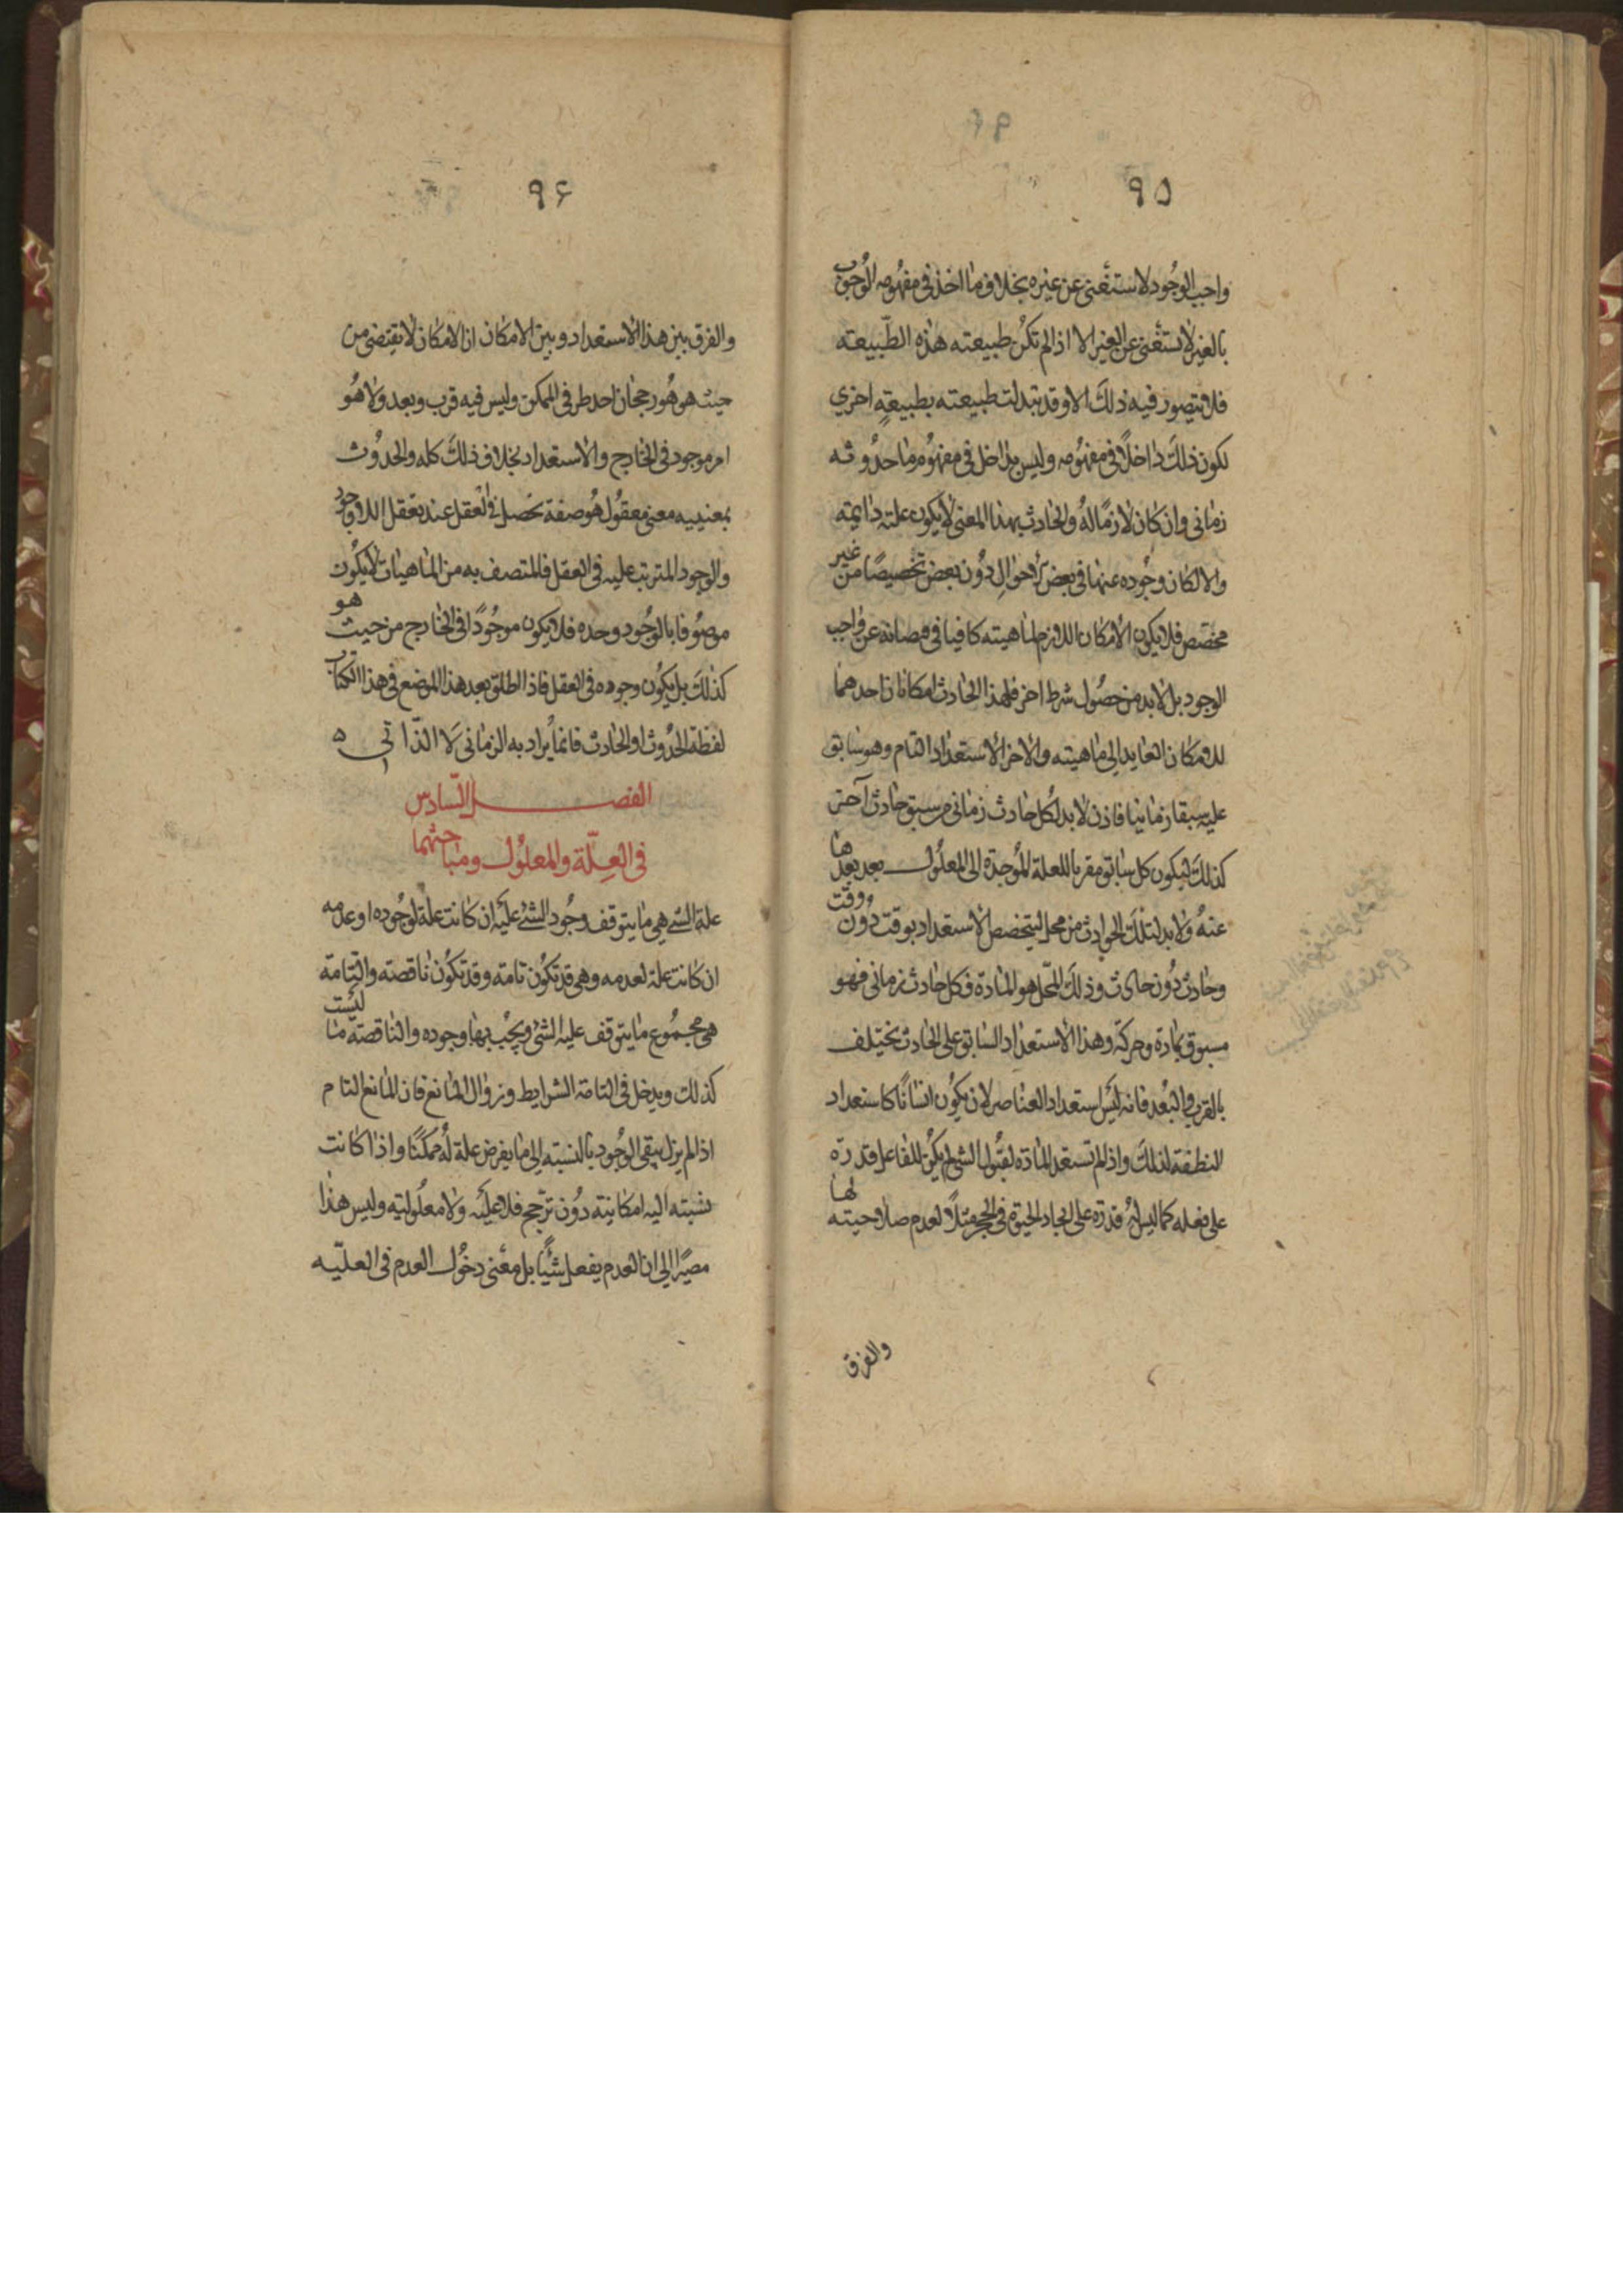 ٩٥
واجب الوجود لاستغنى عن غيره بخلاف ما اخذ فى مفهومه الوجوب
بالغير لا يستغنى عن الغير الا اذا لم تكن طبيعته هذه الطبيعته
فلا يتصور فيه ذلك الا وقد تبدلت طبيعته بطبيعةٍ اخرى
لكون ذلك داخلًا فى مفهومه وليس بداخل فى مفهوم ما حدوثه
زمانى وان كان لازمًا له والحادث بهذا المعنى لا يكون علته دايمته
والا لكان وجوده عنها فى بعض الاحوالِ دون بعض تخصيصًا من غير
مخصص فلا يكون الامكان اللازم لماهيته كافيا فى فيضانه عن واجب
الوجود بل لابد من حصول شرط اخر فلهذا الحادث امكانان احدهما
الامكان العايد الى ماهيته والاخر الاستعداد التام وهو سابق
عليه سبقا زمانيا فاذن لابد لكل حادث زمانى من سبق حادث آخر
كذلك ليكون كل سابق مقربا للعلة الموجدة الى المعلول بعد بعدها
عنه ولابد لتلك الحوادث من محل ليتخصص الاستعداد بوقت دون وقت
وحادث دون حادث وذلك المحل هو المادة فكل حادث زمانى فهو
مسبوق بمادة وحركة وهذا الاستعداد السابق على الحادث يختلف
بالقرب والبعد فانه ليس استعداد العناصر لان يكون انسانًا كاستعداد
النطفة لذلك واذا لم تستعد المادة لقبول الشئ لم يكن للفاعل قدرة
على فعله كما ليس له قدرة على ايجاد الحيوة فى الحجر مثلًا لعدم صلاحيته لها
والفرق
٩۶
والفرق بين هذا الاستعداد وبين الامكان ان الامكان لا يقتضى من
حيث هو هو رجحان احد طرفى الممكن وليس فيه قرب وبعد ولا هو
امر موجود فى الخارج والاستعداد بخلاف ذلك كله والحدوث
بمعنييه معنى معقول هو صفة تحصل فى العقل عند تعقل اللاوجود
والوجود المترتب عليه فى العقل فالمتصف به من الماهيات لا يكون
موصوفا بالوجود وحده فلا يكون موجودًا فى الخارج من حيث هو
كذلك بل يكون وجوده فى العقل فاذا اطلق بعد هذا الموضع فى هذا الكتاب
لفظة الحدوث او الحادث فانما يراد به الزمانى لا الذاتى ه
الفصل السادس
فى العلّة والمعلول ومباحثهما
علة الشئ هى ما يتوقف وجود الشئ عليه ان كانت علة لوجوده او عدمه
ان كانت علة لعدمه وهى قد تكون تامة وقد تكون ناقصة والتامة
هى مجموع ما يتوقف عليه الشئ ويجب بها وجوده والناقصة ما ليست
كذلك ويدخل فى التامة الشرايط وزوال المانع فان المانع التام
اذا لم يزل يبقى الوجود بالنسبته الى ما يفرض علة له ممكنًا واذا كانت
نسبته اليه امكانيته دون ترجح فلا علّيّه ولا معلوليته وليس هذا
مصيرًا الى ان العدم يفعل شيئًا بل معنى دخول العدم فى العلّيه